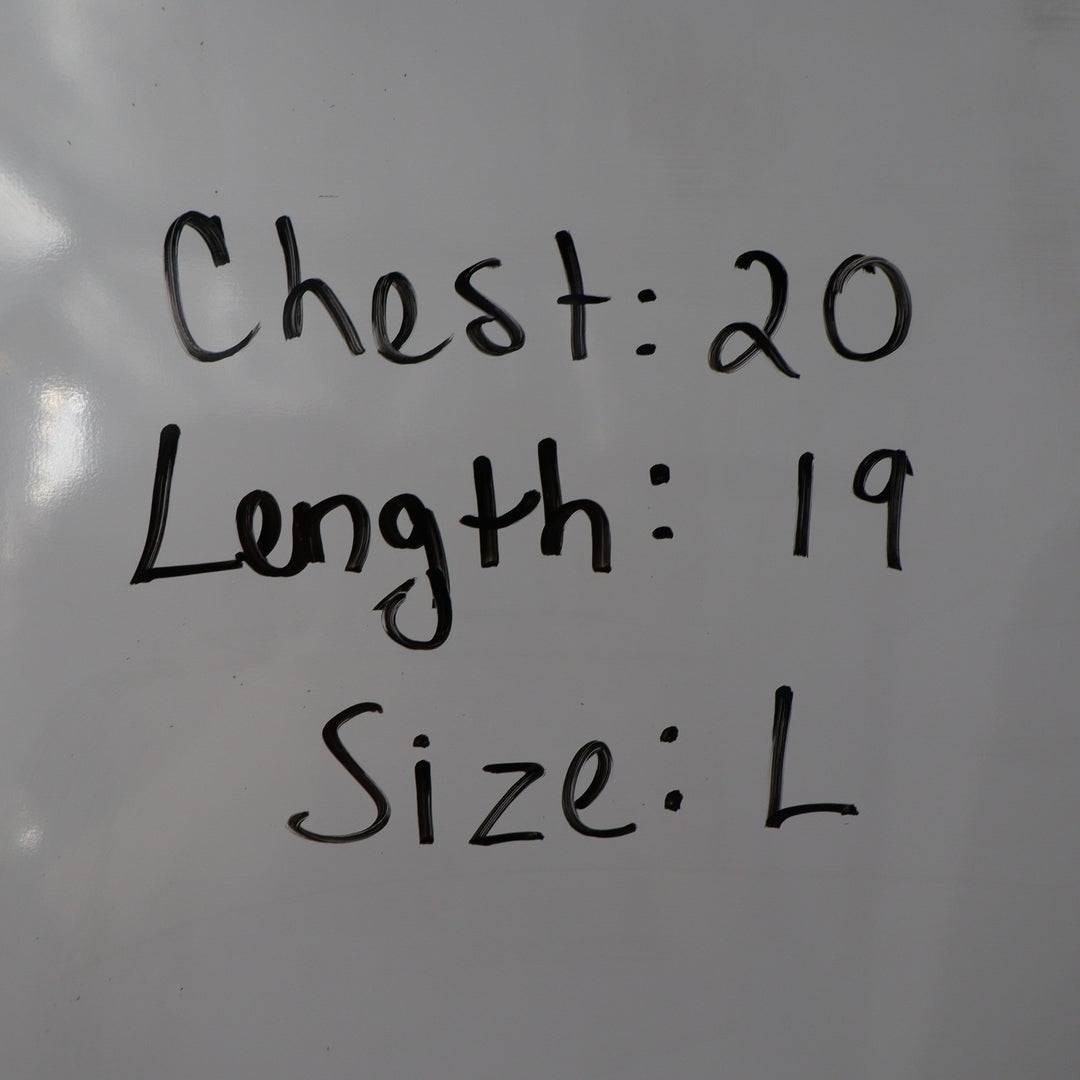 Chest: 20
Length: 19
Size: L